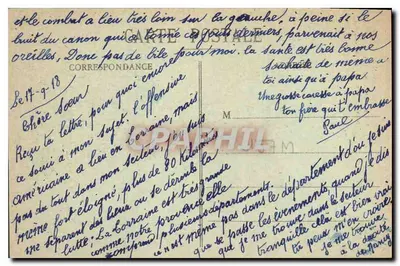 Le 17-9-18
Chère Soeur
Reçu ta lettre, pour quoi encore
ce souci à mon sujet. L'offensive
américaine a lieu en Lorraine, mais
pas du tout dans mon secteur, je suis
même fort éloigné, plus de 80 kilom
me séparent des lieux où se déroule la
lutte. La Lorraine est très grande
comme notre province, elle
comprend plusieurs départements.
Ce n'est même pas dans le département d'où je suis
que se passe les événements, quand je dis
que je me trouve dans le secteur
tranquille cela est bien vrai
tu peux m'en croire
je me trouve
à la droite
et le combat a lieu très loin sur la gauche, à peine si le
bruit du canon qui a tonné ces jours derniers, parvenait à nos
oreilles. Donc pas de bile pour moi. la santé est très bonne
souhaite de même à
toi ainsi qu'à papa.
Une grosse caresse à papa
ton frère qui t'embrasse
Paul
CARTE POSTALE
CORRESPONDANCE
M
CPAPHIL.COM